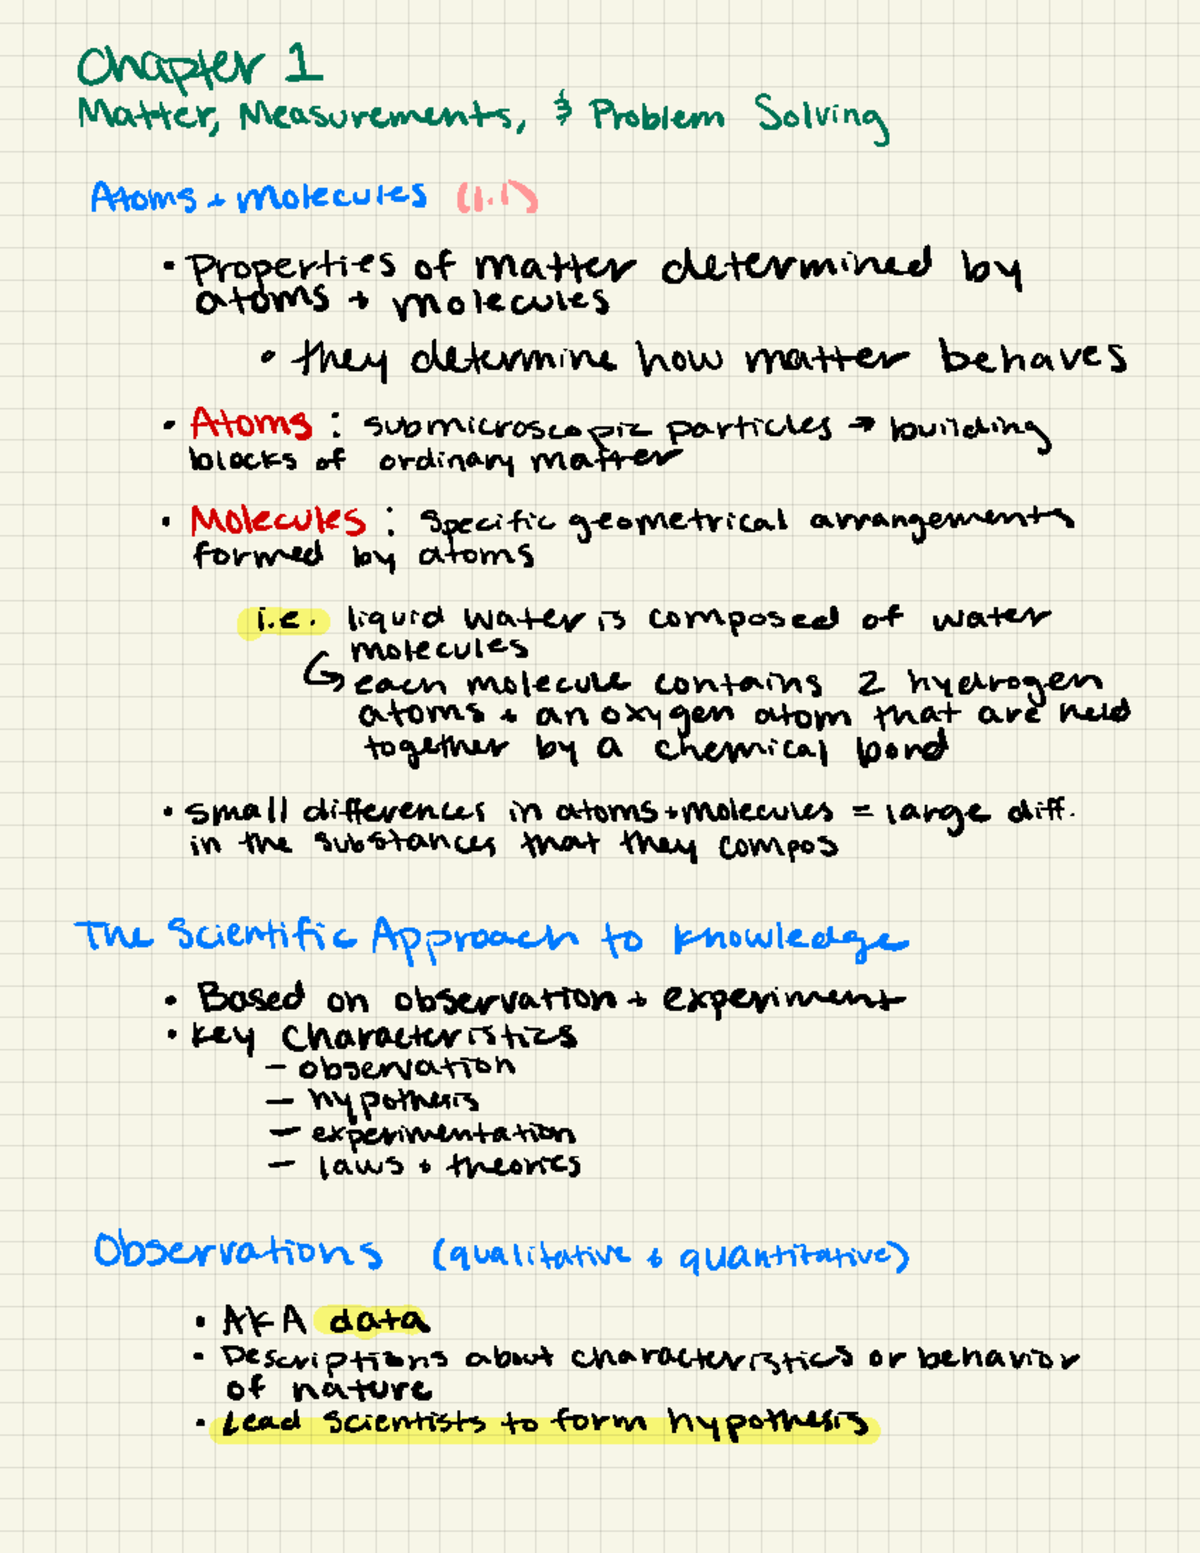 Chapter 1
Matter, Measurements, & Problem Solving
Atoms + Molecules (1.1)
• Properties of matter determined by
atoms + molecules
• they determine how matter behaves
• Atoms : submicroscopic particles → building
blocks of ordinary matter
• Molecules : specific geometrical arrangements
formed by atoms
i.e. liquid water is composed of water
molecules
↪ each molecule contains 2 hydrogen
atoms + an oxygen atom that are held
together by a chemical bond
• small differences in atoms + molecules = large diff.
in the substances that they compos
The Scientific Approach to Knowledge
• Based on observation + experiment
• Key Characteristics
– observation
– hypothesis
– experimentation
– laws + theories
Observations (qualitative + quantitative)
• AKA data
• Descriptions about characteristics or behavior
of nature
• Lead scientists to form hypothesis